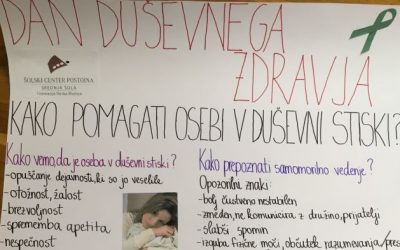 DAN DUŠEVNEGA
ZDRAVJA
ŠOLSKI CENTER POSTOJNA
SREDNJA ŠOLA
KAKO POMAGATI OSEBI V DUŠEVNI STISKI?
Kako vemo, da je oseba v duševni stiski?
-opuščanje dejavnosti, ki so jo veselile
-otožnost, žalost
-brezvoljnost
-sprememba apetita
-nespečnost
Kako prepoznati samomorilno vedenje?
Opozorilni znaki:
-bolj čustveno nestabilen
-zmeden, ne komunicira z družino, prijatelji
-slabši spomin
-izguba fizične moči, občutek razumevanja/pres